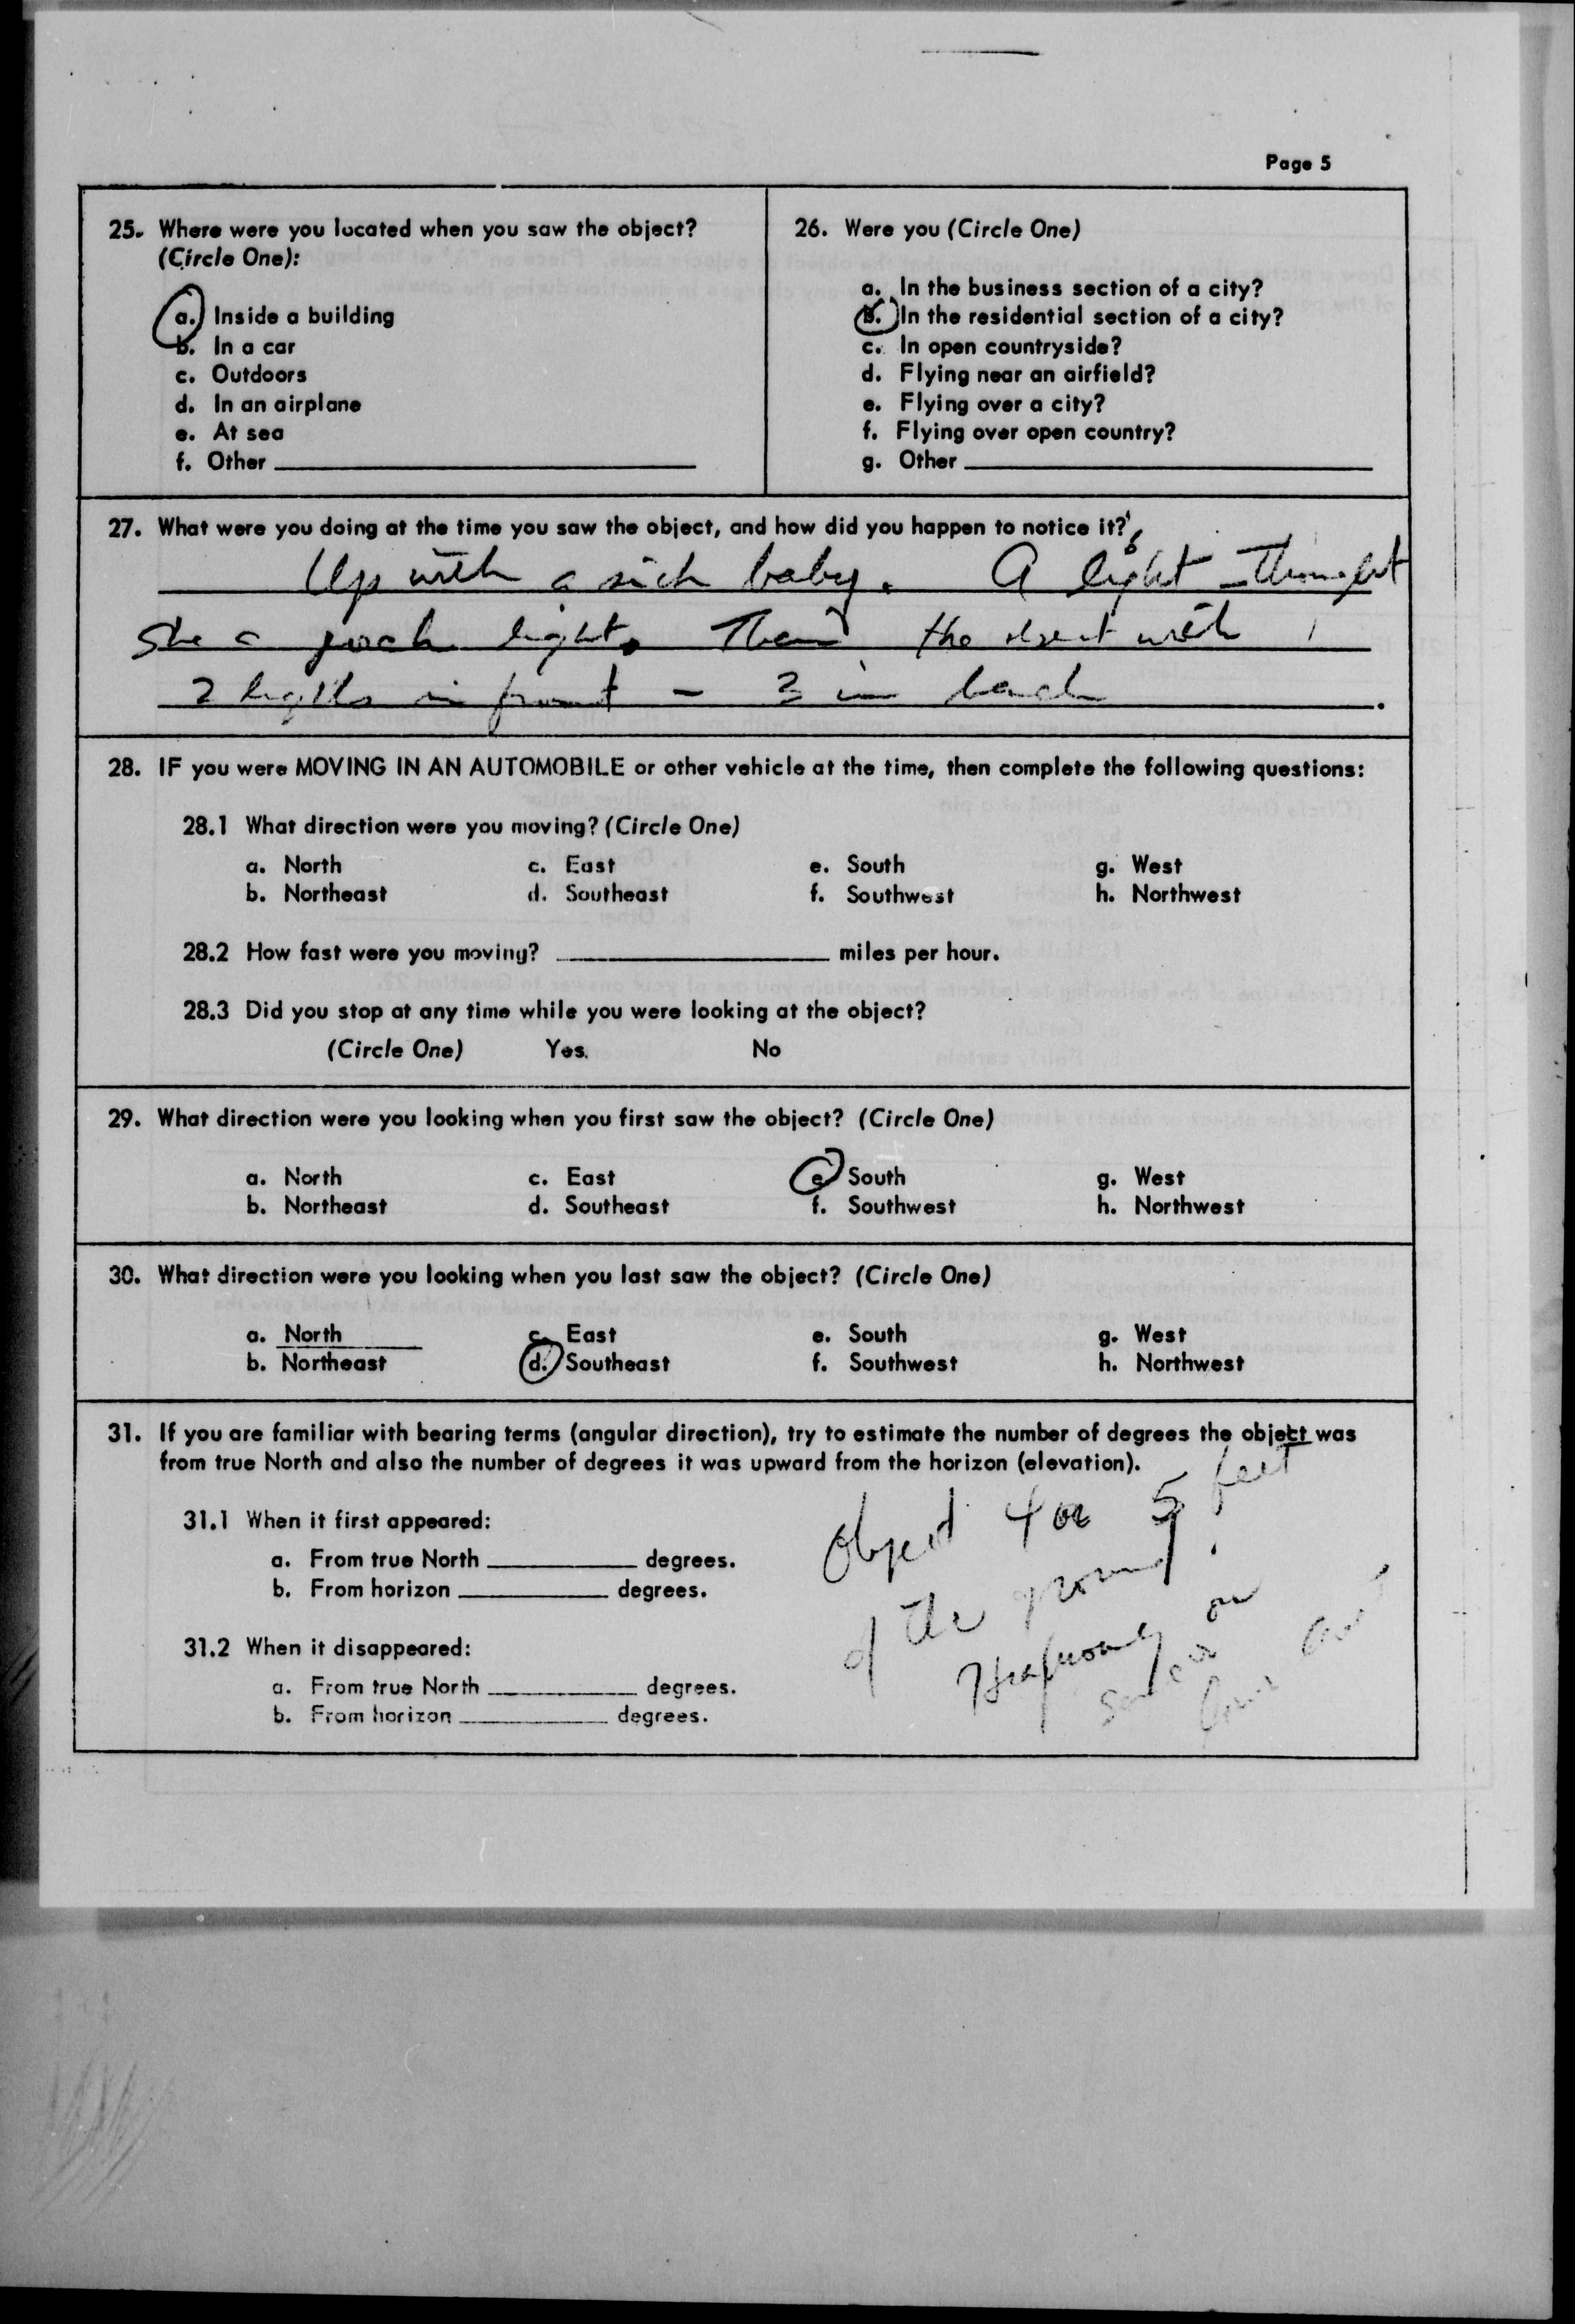 Page 5
25. Where were you located when you saw the object?
(Circle One):
a. Inside a building
b. In a car
c. Outdoors
d. In an airplane
e. At sea
f. Other
26. Were you (Circle One)
a. In the business section of a city?
b. In the residential section of a city?
c. In open countryside?
d. Flying near an airfield?
e. Flying over a city?
f. Flying over open country?
g. Other
27. What were you doing at the time you saw the object, and how did you happen to notice it?
Up with a sick baby. A light - Thought
She a porch light. Then the with 1
2 lights in front - 3 in back
28. IF you were MOVING IN AN AUTOMOBILE or other vehicle at the time, then complete the following questions:
28.1 What direction were you moving? (Circle One)
a. North c. East e. South g. West
b. Northeast d. Southeast f. Southwest h. Northwest
28.2 How fast were you moving? miles per hour.
28.3 Did you stop at any time while you were looking at the object?
(Circle One) Yes. No
29. What direction were you looking when you first saw the object? (Circle One)
a. North c. East e. South g. West
b. Northeast d. Southeast f. Southwest h. Northwest
30. What direction were you looking when you last saw the object? (Circle One)
a. North c. East e. South g. West
b. Northeast d. Southeast f. Southwest h. Northwest
31. If you are familiar with bearing terms (angular direction), try to estimate the number of degrees the object was
from true North and also the number of degrees it was upward from the horizon (elevation).
31.1 When it first appeared:
a. From true North degrees.
b. From horizon degrees.
31.2 When it disappeared:
a. From true North degrees.
b. From horizon degrees.
Object 4 or 5 feet
of the ground.